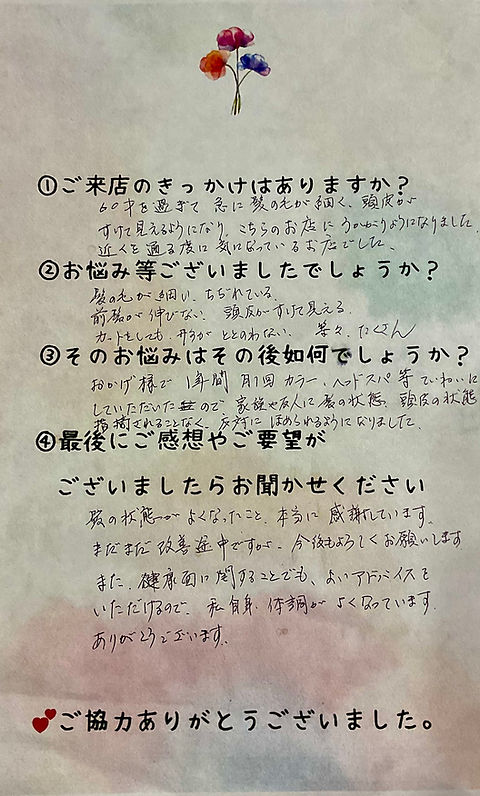 ①ご来店のきっかけはありますか？
60才を過ぎて 急に 髪の毛が細く、頭皮が
すけて見えるようになり、こちらのお店に うかがうようになりました。
近くを通る度に 気になっているお店でした。
②お悩み等ございましたでしょうか？
髪の毛が細い、ちぢれている。
前髪が伸びない、頭皮がすけて見える。
カットをしても、形がととのわない、等々、たくさん
③そのお悩みはその後如何でしょうか？
おかげ様で 1年間 月1回 カラー、ヘッドスパ等 ていねいに
していただいたので 家族や友人に 髪の状態、頭皮の状態
指摘されることなく、反対に ほめられるようになりました。
④最後にご感想やご要望が
ございましたらお聞かせください
髪の状態がよくなったこと、本当に 感謝しています。
まだまだ 改善途中ですが、今後もよろしくお願いします
また、健康面に関することでも、よいアドバイスを
いただけるので、私自身 体調が よくなっています。
ありがとうございます。
ご協力ありがとうございました。